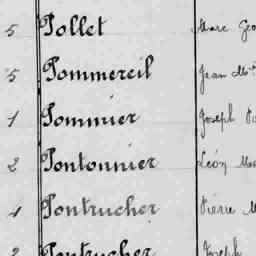 5 Pollet Marc Geo
5 Pommereil Jean M
1 Pommier Joseph
2 Pontonnier Léon Ma
1 Pontrucher Pierre M
2 Pontrucher Joseph